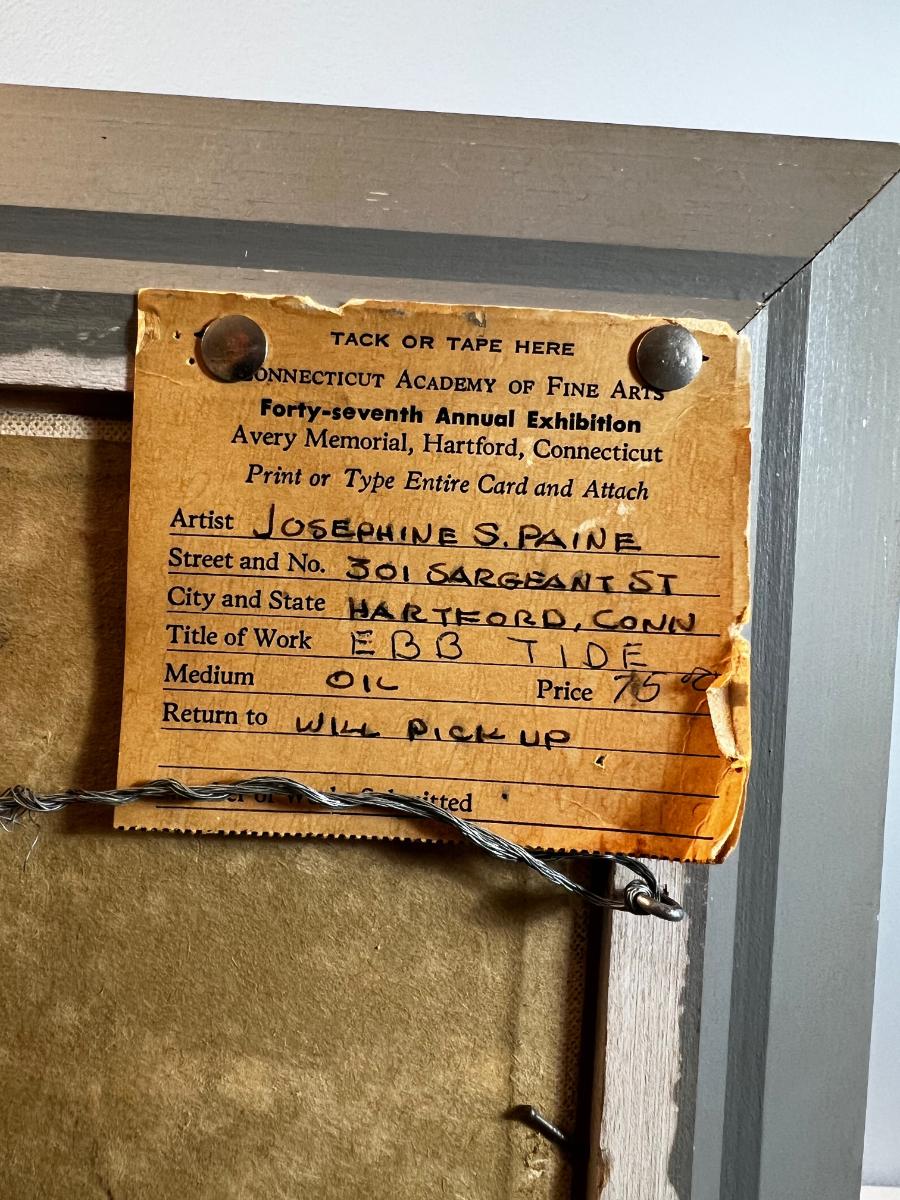 TACK OR TAPE HERE
CONNECTICUT ACADEMY OF FINE ARTS
Forty-seventh Annual Exhibition
Avery Memorial, Hartford, Connecticut
Print or Type Entire Card and Attach
Artist JOSEPHINE S. PAINE
Street and No. 301 SARGEANT ST
City and State HARTFORD, CONN
Title of Work EBB TIDE
Medium OIL Price 75
Return to WILL PICK UP
of Submitted